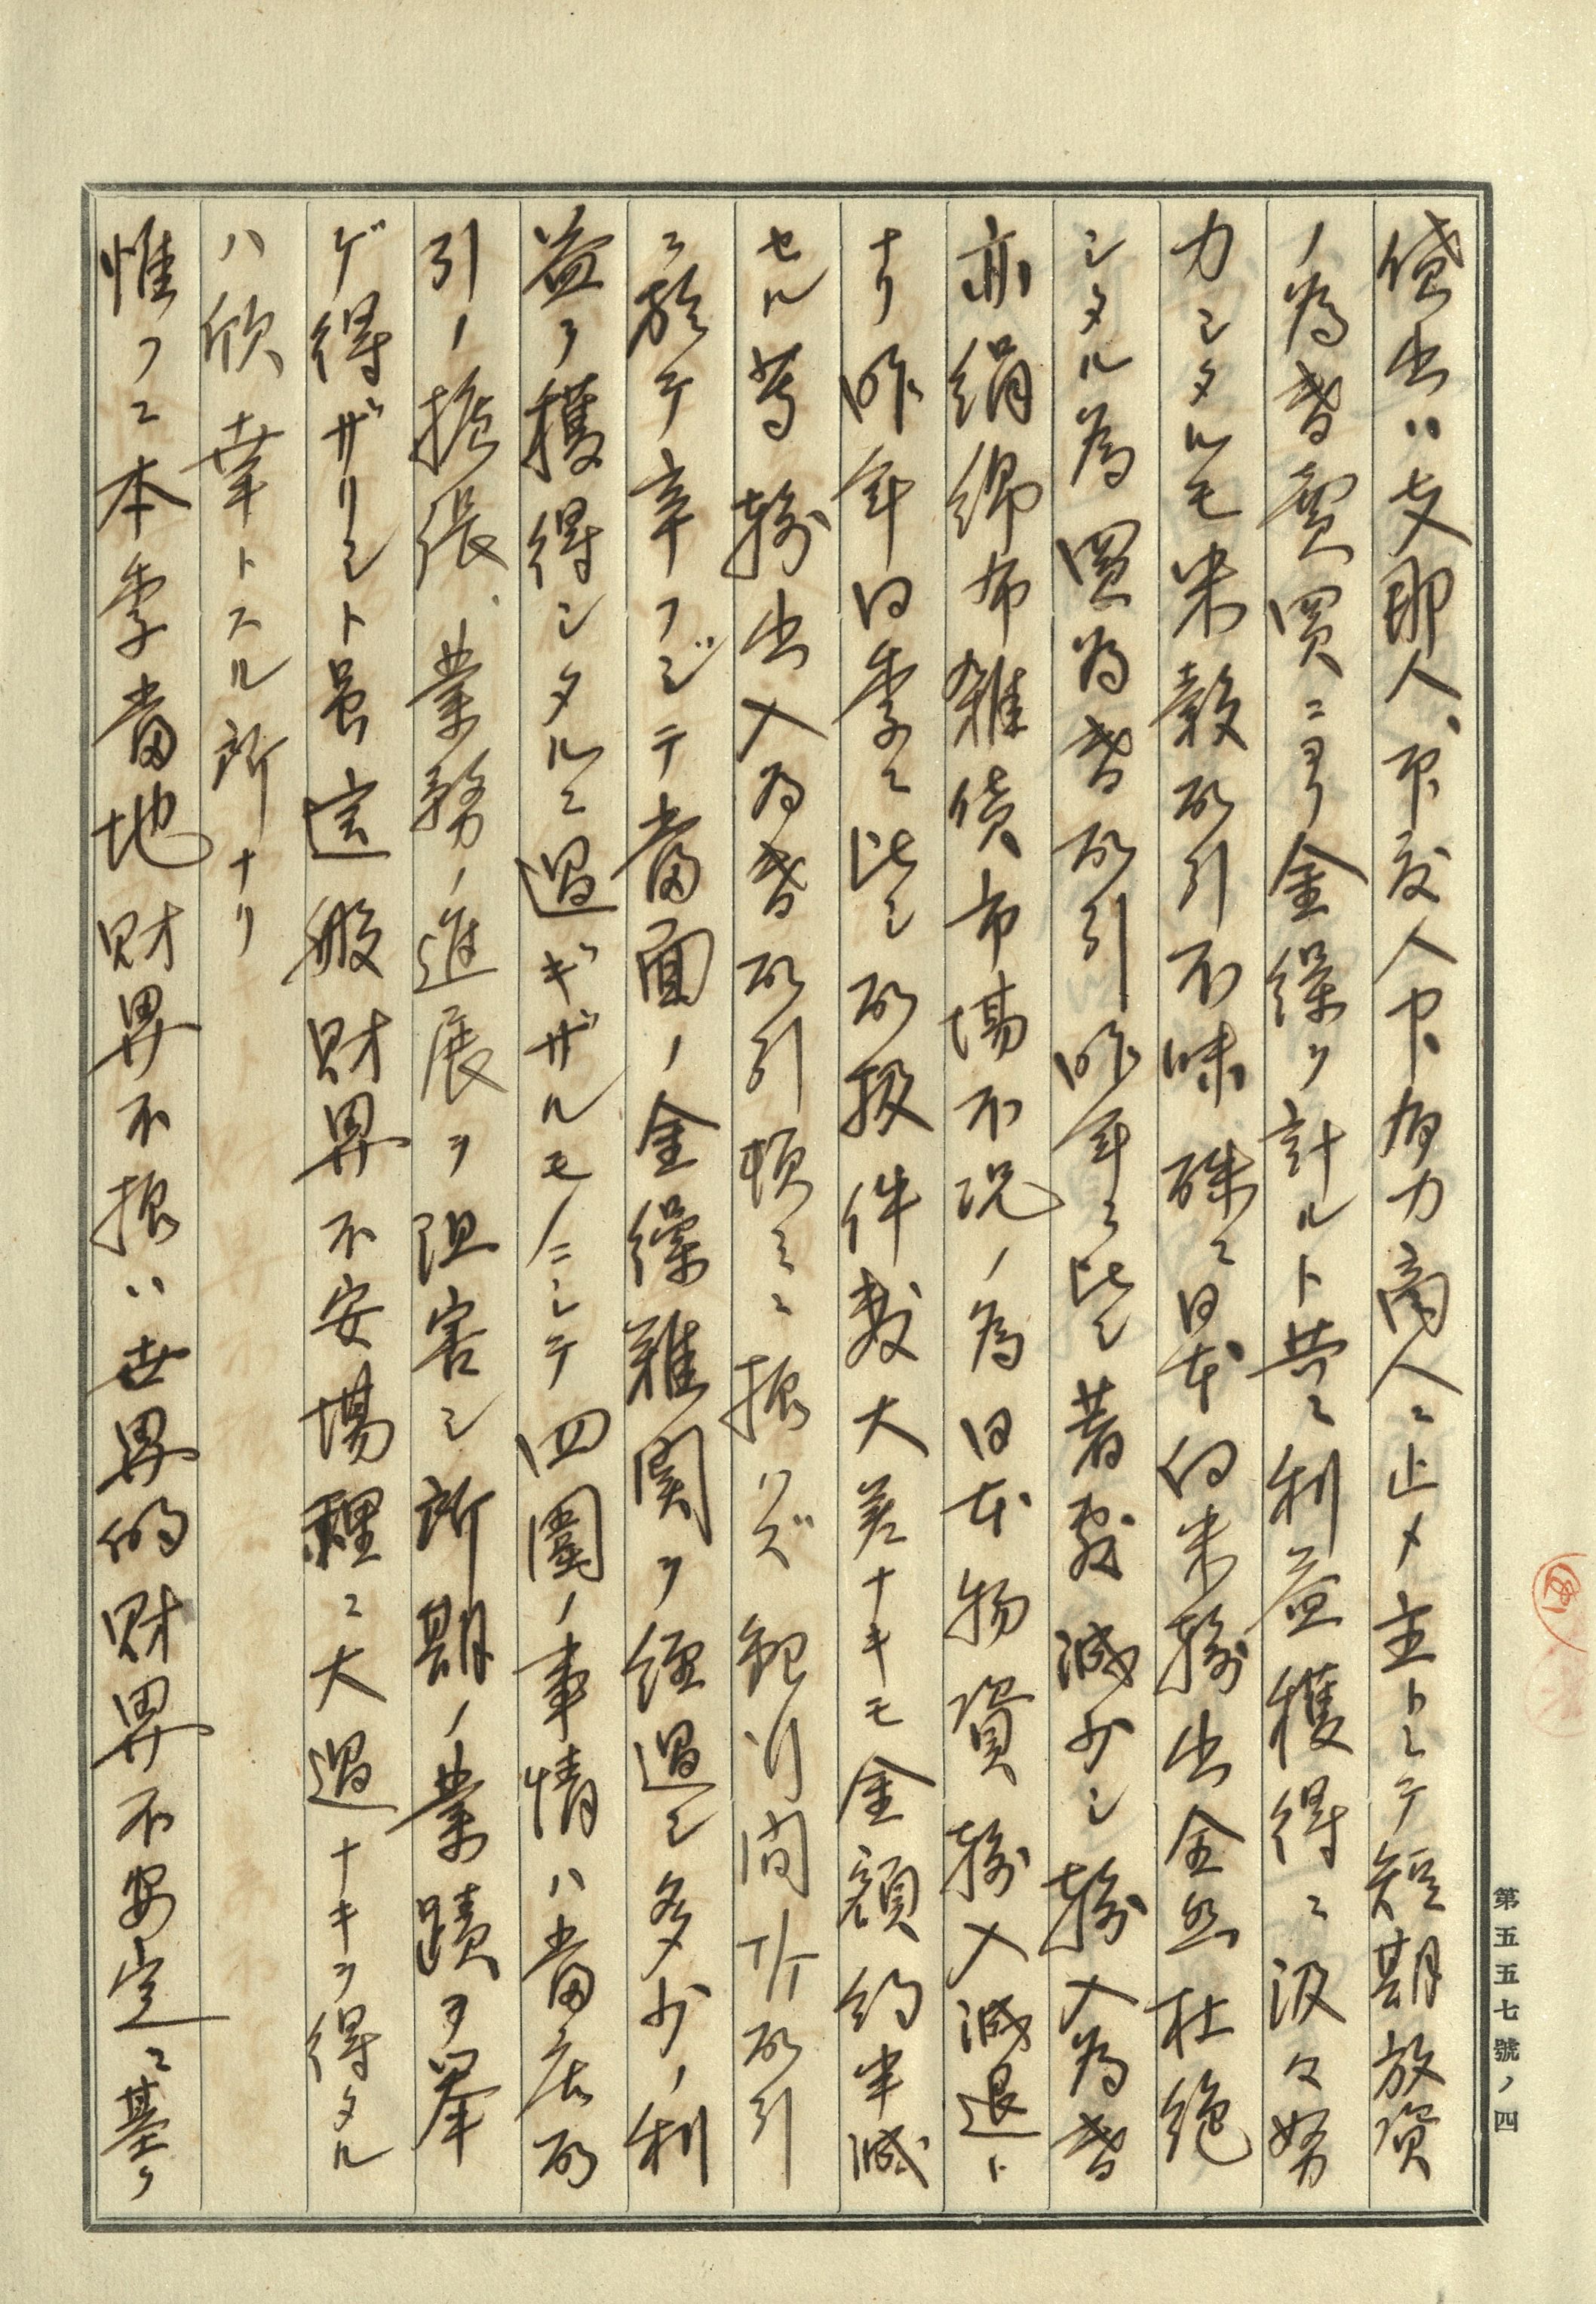 貸出ハ支那人、印度人中有力商人ニ止メ主トシテ短期放資
ノ為替賣買ニヨリ金繰ヲ計ルト共ニ利益獲得ニ汲々努
力シタルモ米穀取引不味殊ニ日本向米輸出全然杜絶
シタル為買為替取引昨年ニ比シ著敷減少シ輸入為替
亦絹綿布雑貨市場不況ノ為日本物資輸入減退ト
ナリ昨年同季ニ比シ取扱件数大差ナキモ金額約半減
セル等輸出入為替取引頓ミニ振ハズ 銀行間T/T取引
ニ於テ辛フジテ當面ノ金繰難関ヲ経過シ多少ノ利
益ヲ獲得シタルニ過ギザルモノニシテ四圍ノ事情ハ當店取
引ノ擴張、業務ノ進展ヲ阻害シ所期ノ業蹟ヲ挙
ゲ得ザリシト虽這般財界不安場裡ニ大過ナキヲ得タル
ハ欣幸トスル所ナリ
惟フニ本季當地財界不振ハ世界的財界不安定ニ基ク
第五五七號ノ四